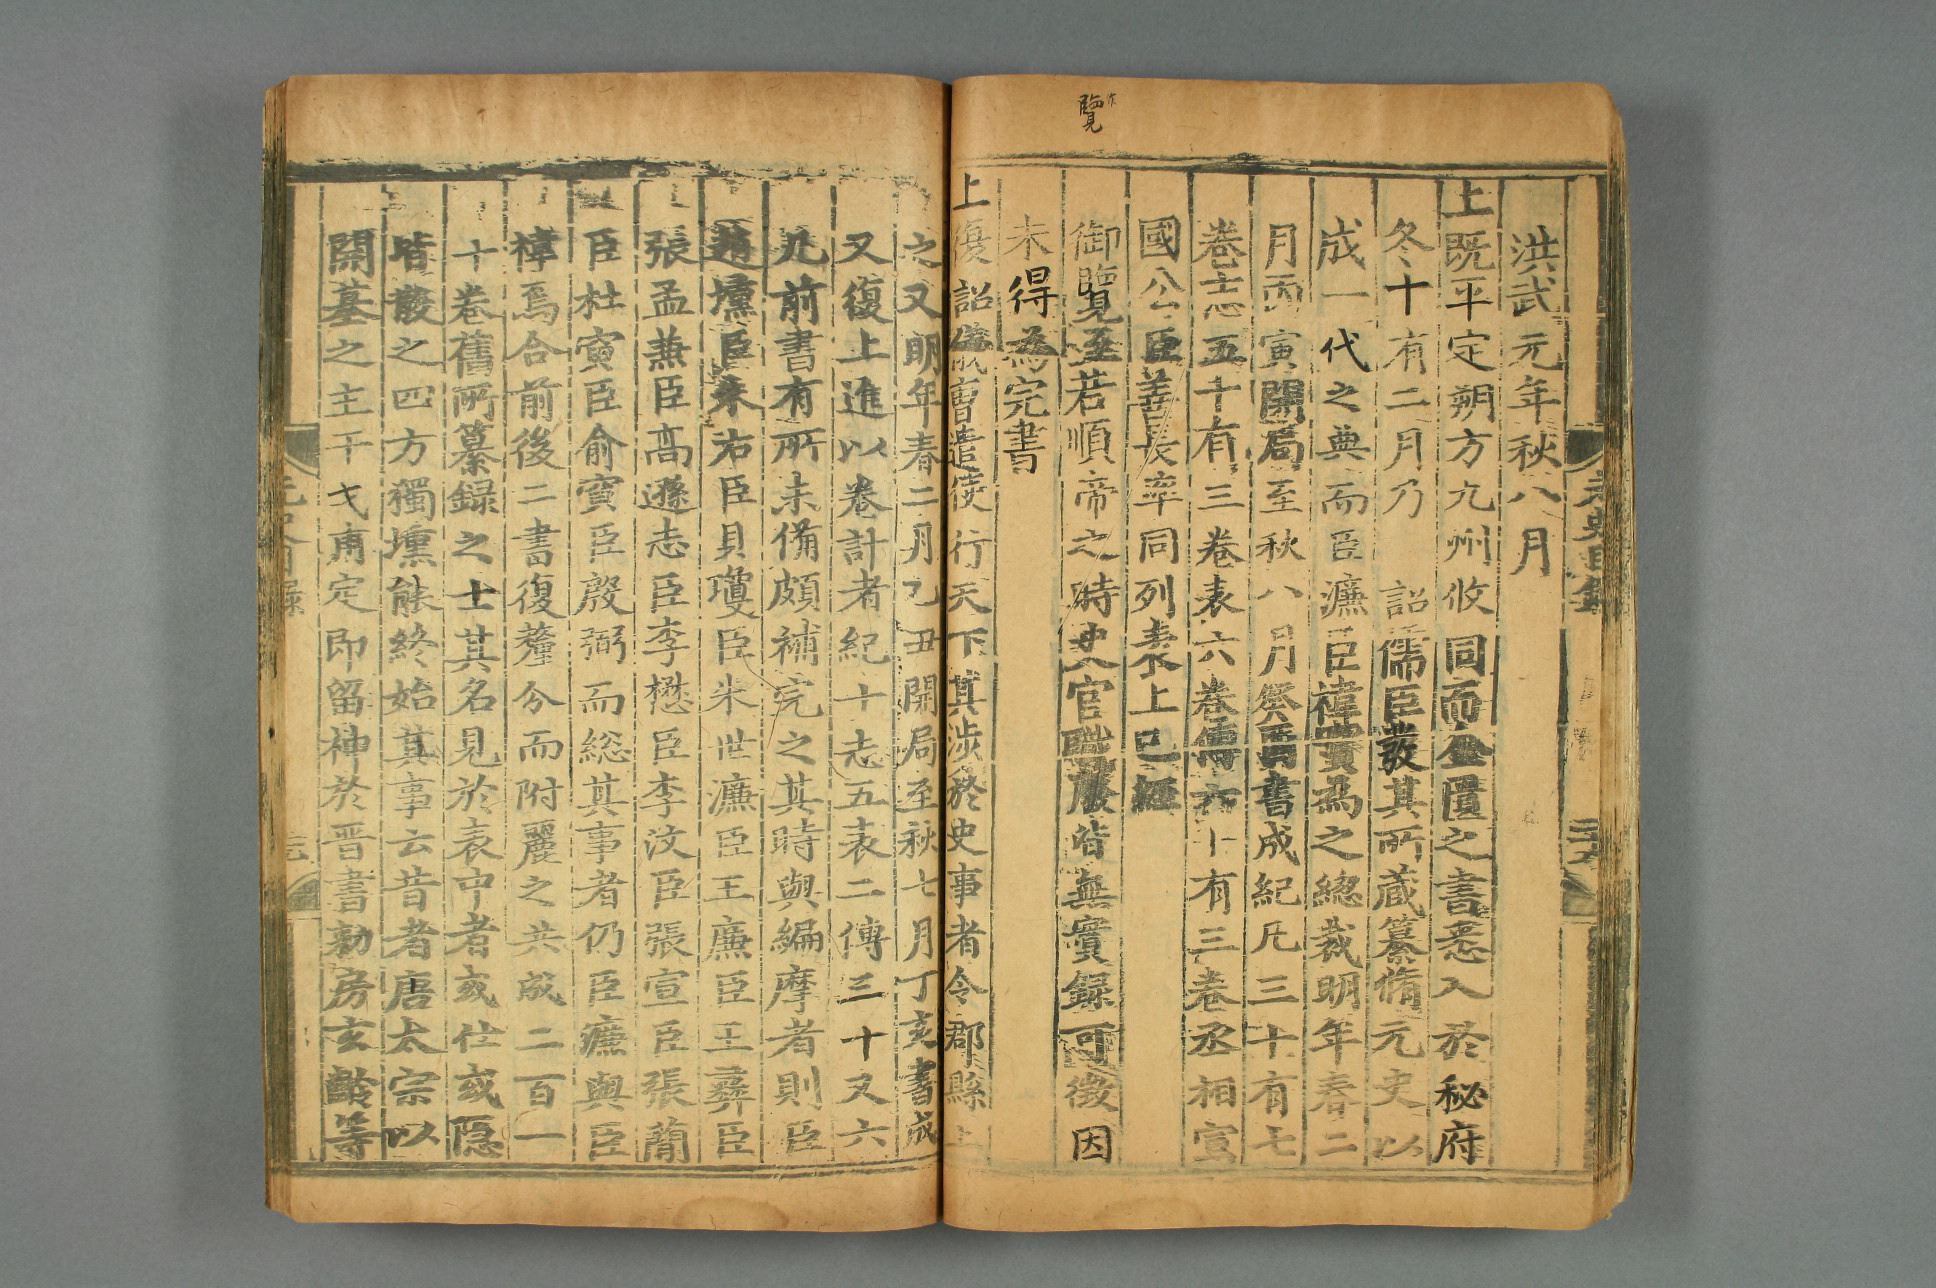 覽
洪武元年秋八月
上既平定朔方九州攸同而金匱之書悉入於秘府
冬十有二月乃 詔儒臣發其所藏纂脩元史以
成一代之典而臣濂臣禕寔為之總裁明年春二
月丙寅開局至秋八月癸酉書成紀凡三十有七
卷志五十有三卷表六卷傳六十有三卷丞相宣
國公臣善長率同列表上已經
御覽至若順帝之時史官職廢皆無實録可徵因
未得為完書
上復詔儀曹遣使行天下其涉於史事者令郡縣上
之又明年春二月乙丑開局至秋七月丁亥書成
又復上進以卷計者紀十志五表二傳三十又六
凡前書有所未備頗補完之其時與編摩者則臣
趙壎臣朱右臣貝瓊臣朱世濂臣王廉臣王彝臣
張孟兼臣高遜志臣李懋臣李汶臣張宣臣張蕳
臣杜寅臣俞寅臣殷弼而総其事者仍臣濂與臣
禕焉合前後二書復釐分而附麗之共成二百一
十卷舊所纂録之士其名見於表中者或仕或隐
皆散之四方獨壎能終始其事云昔者唐太宗以
開基之主干戈甫定即留神於晋書勑房玄齡等
元史目録
元史目録